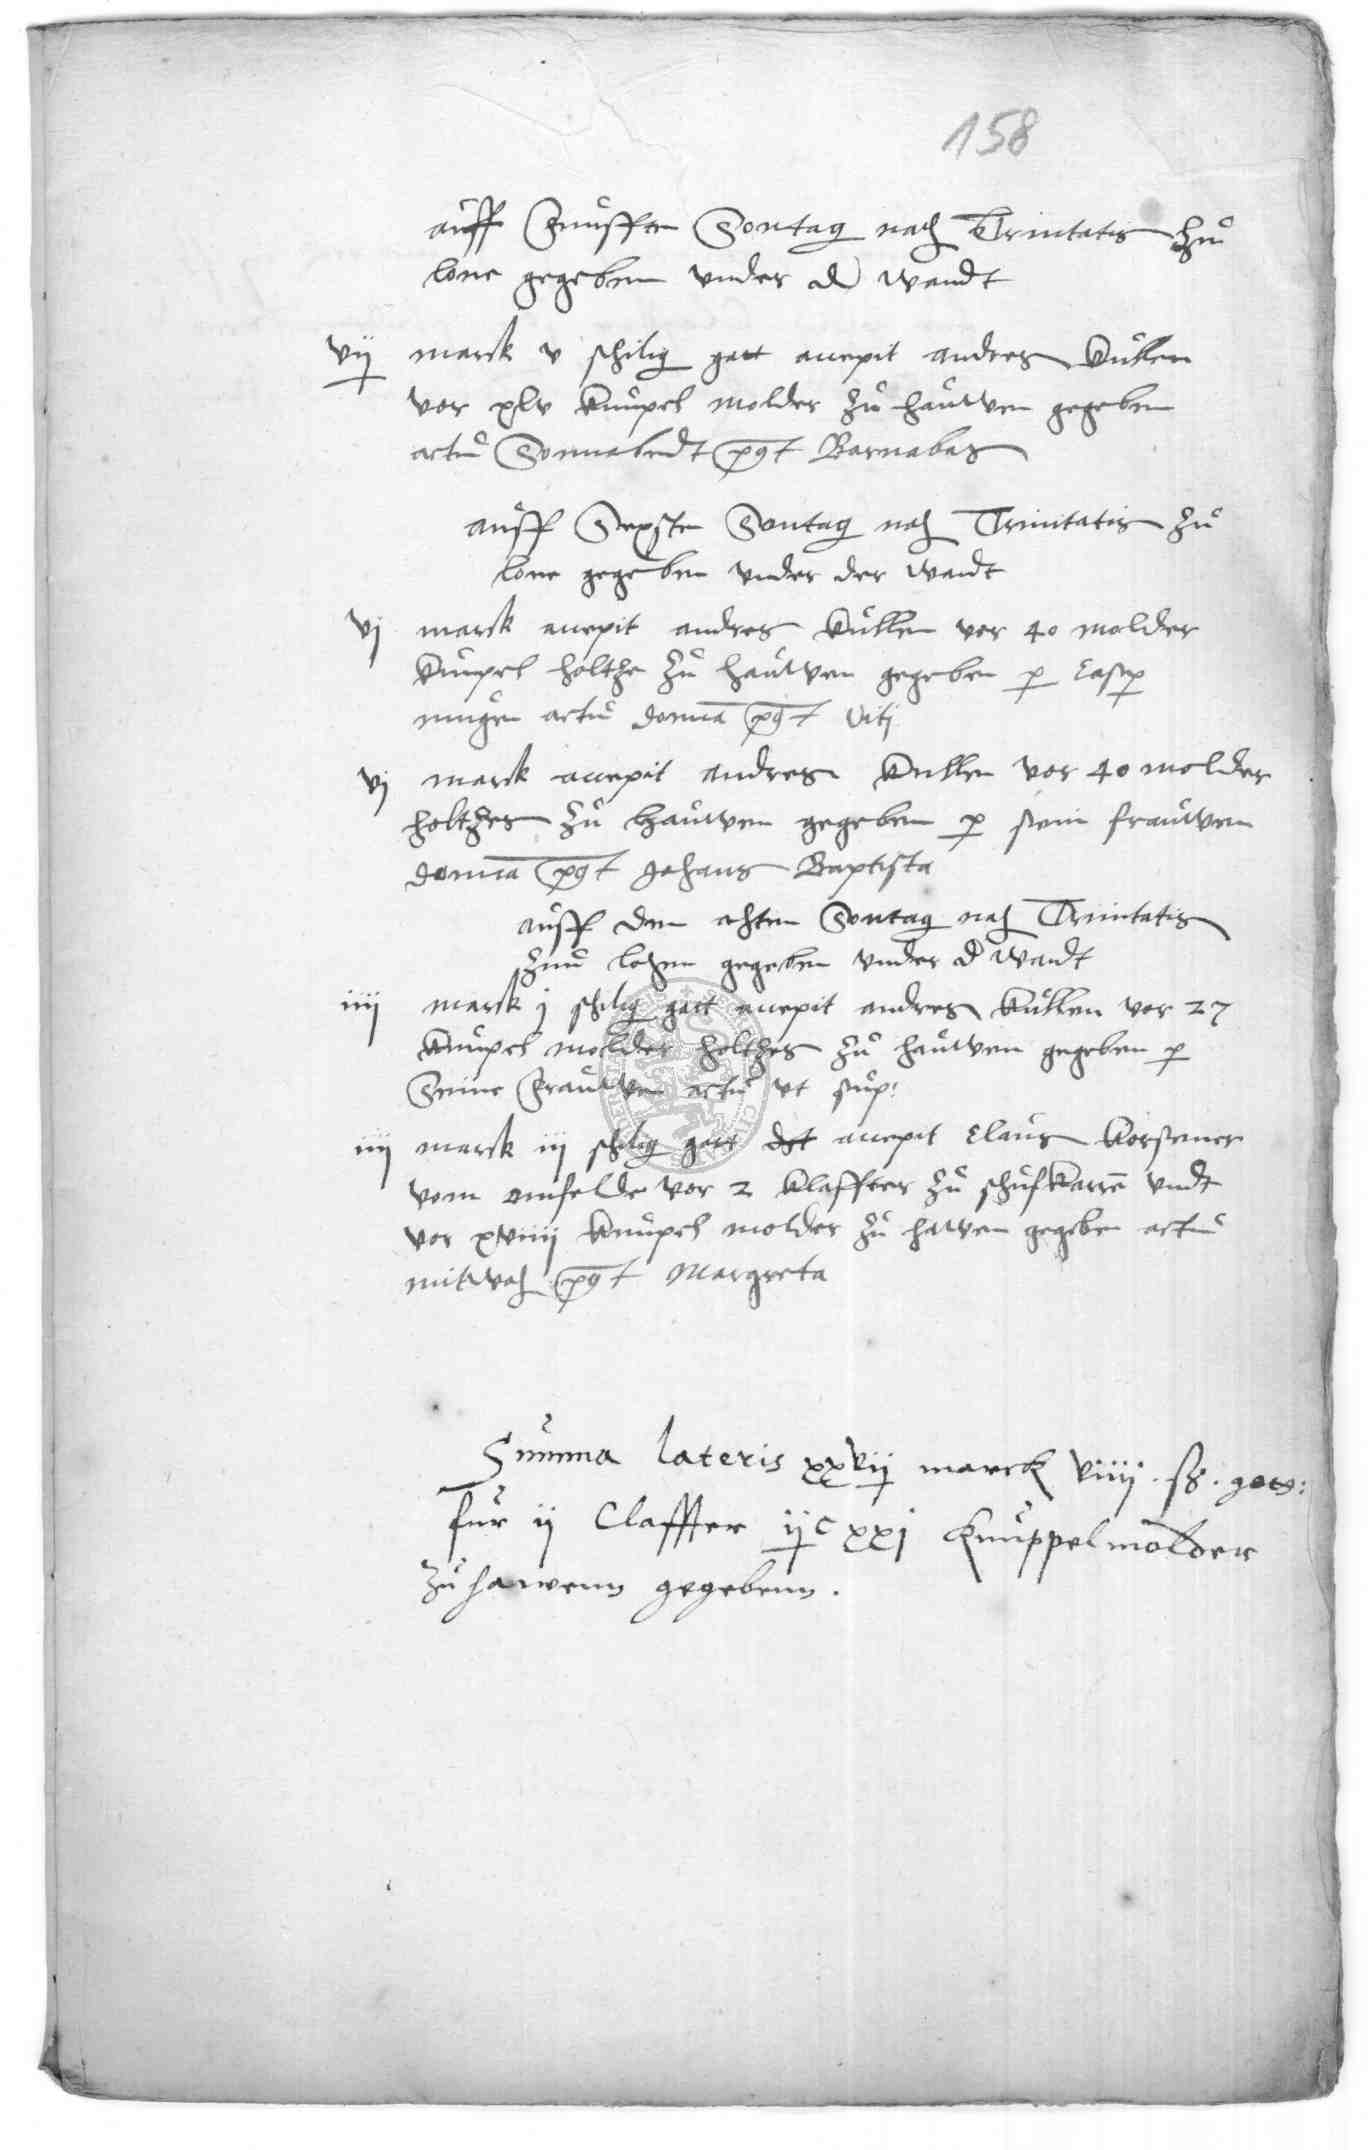 158
auff Funfften Sontag nach Trinitatis zu
lone gegeben under d wandt
vij marck v schilig gatt accepit andres Kullen
vor xlv Knupel molder zu hauwen gegeben
actu Sonnabendt pqt Barnabas
auff Sexsten Sontag nach Trinitatis zu
lone gegeben under der wandt
vj marck accepit andres Kullen vor 40 molder
Knupel holtze zu hauwen gegeben p Casp
actu donica pqt Viti
vj marck accepit andres Kullen vor 40 molder
holtzes zu hauwen gegeben p sein frauwen
donica pqt Johans Baptista
auff den achten Sontag nach Trinitatis
zuu lohen gegeben under d wandt
iiij marck j schilig gatt accepit andres Kullen vor 27
Knupel molder holtzes zu hauwen gegeben p
Seine Frauwen actu ut sup:
iiij marck iij schilig gatt accepit Claus Korsener
vom vor 2 Klaffter zu schufkarre undt
vor xviiij Knupel molder zu hawen gegeben actu
mitwoch pqt Margreta
Summa lateris xxvij marck viiij . sch . gots:
fur ij Claffter ijc xxj Knuppelmolder
zu hawenn gegebenn .